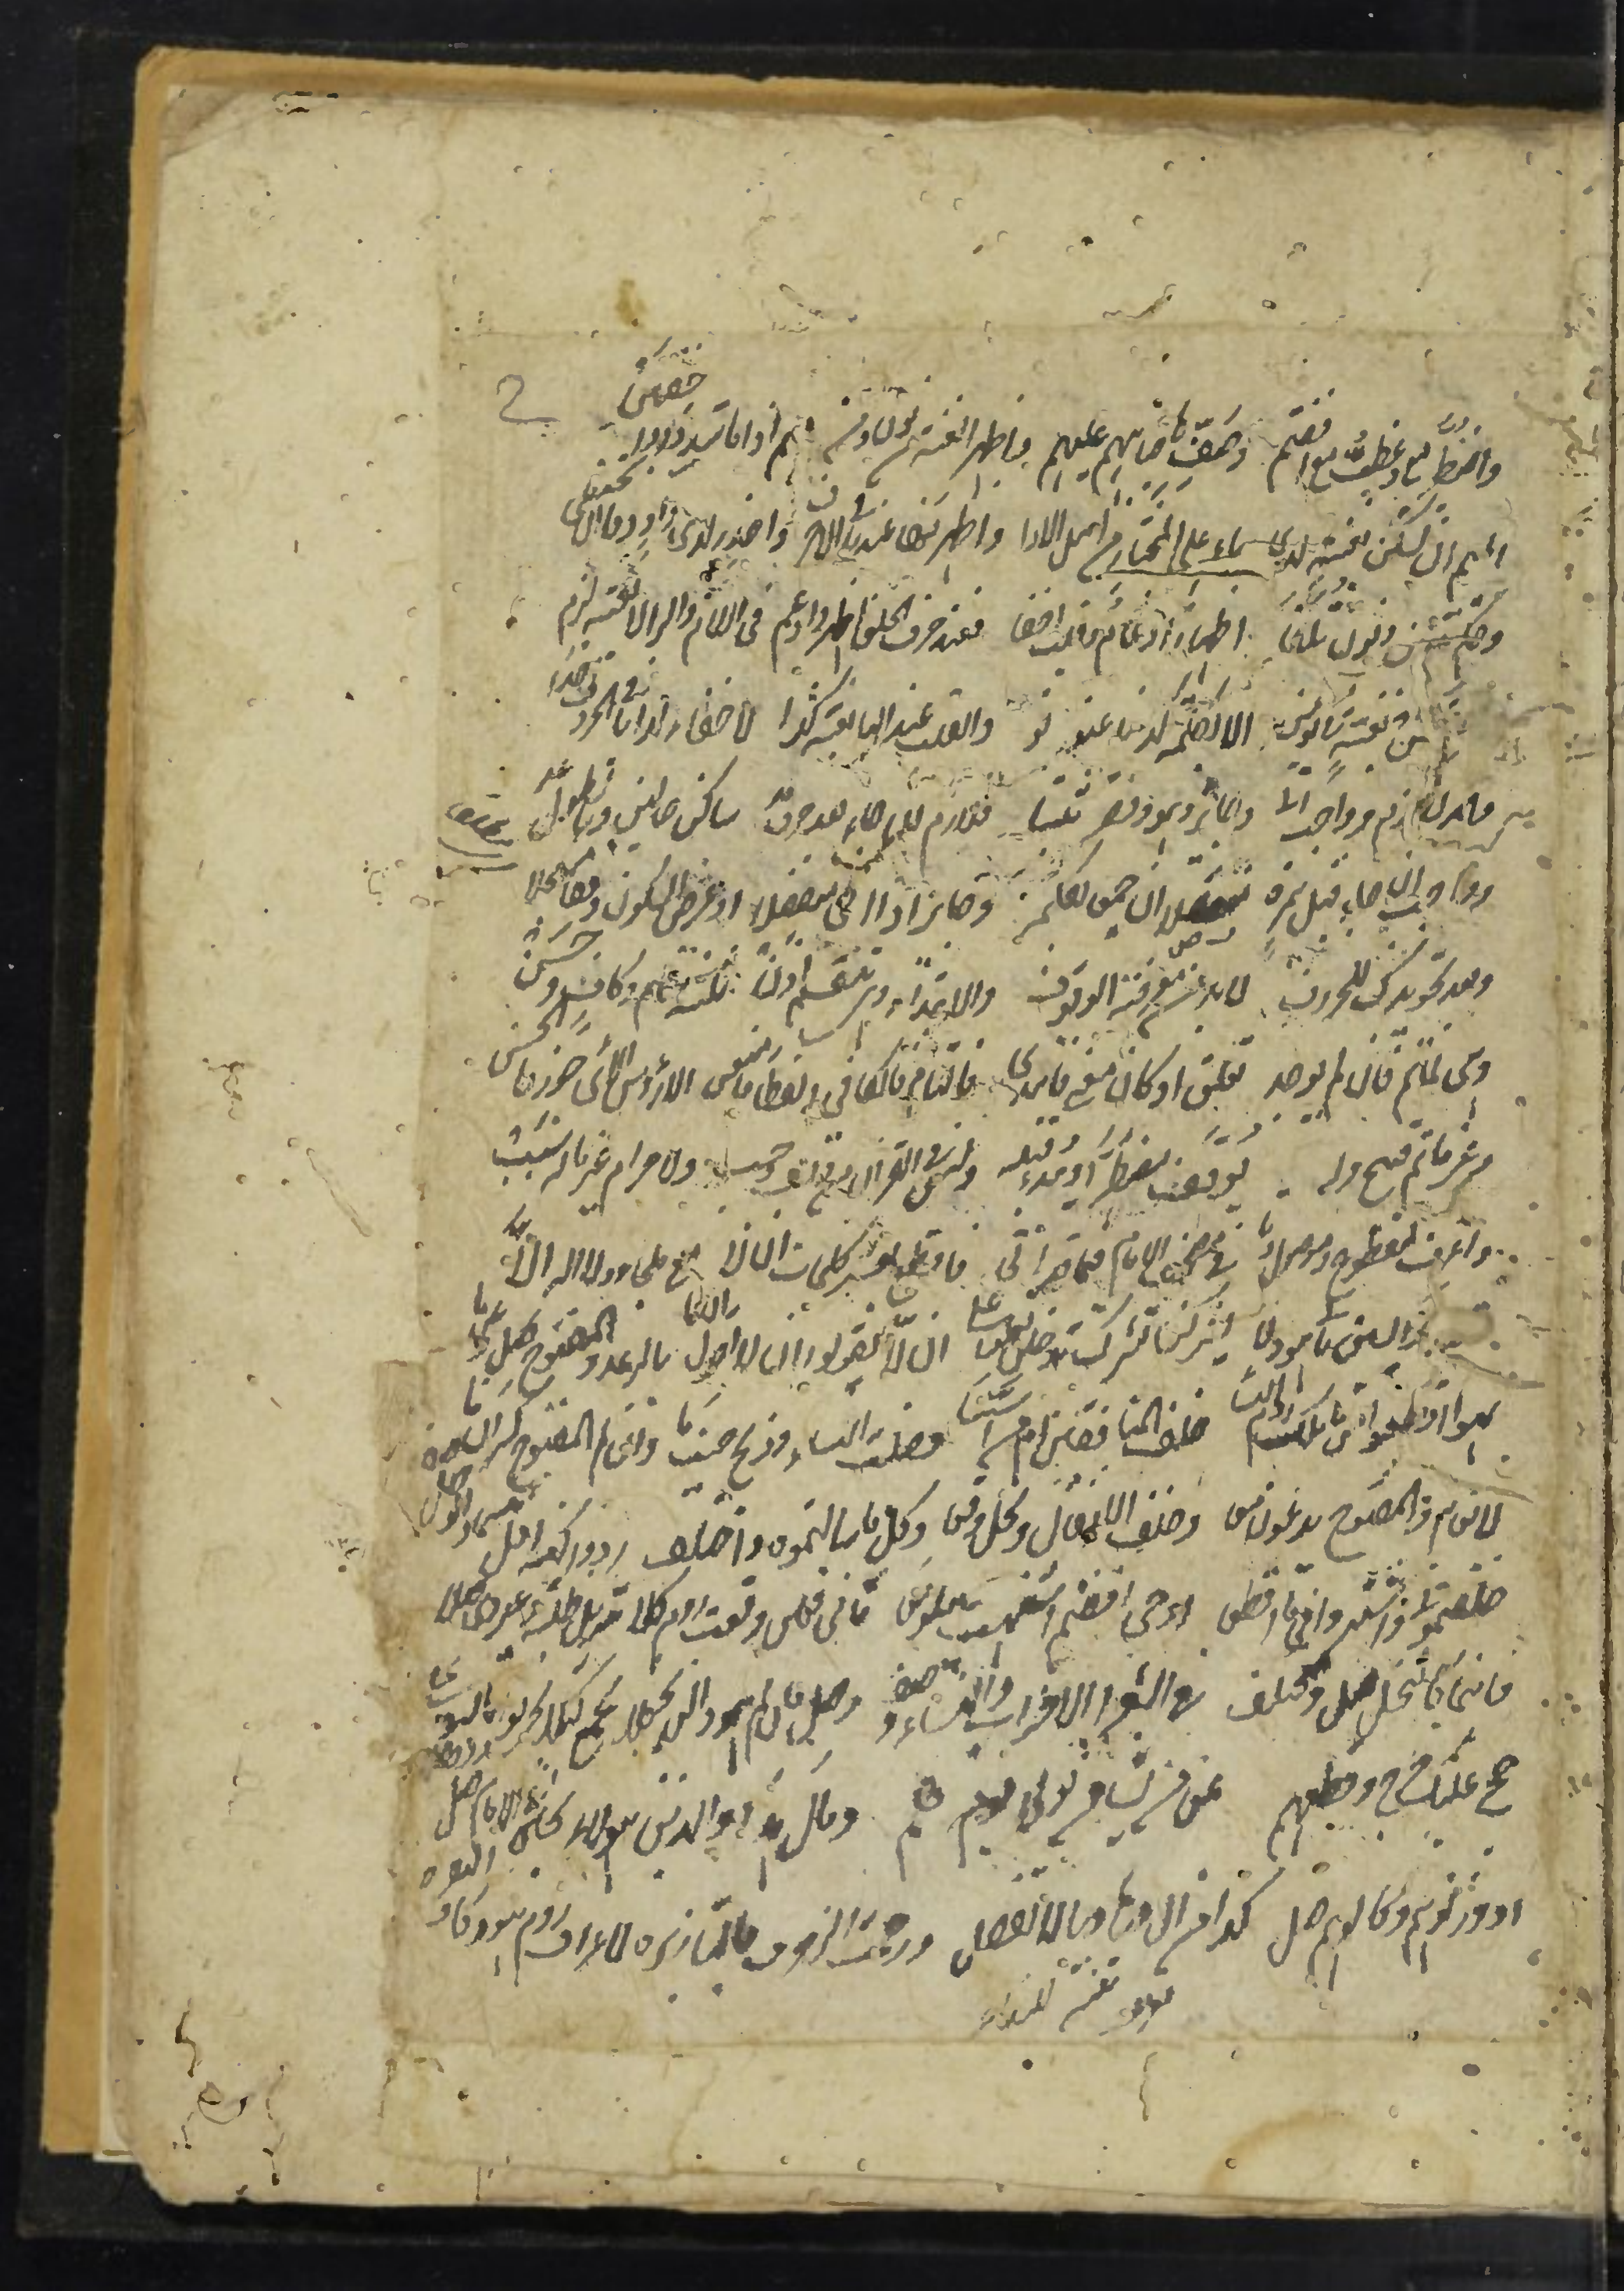 واضطر مع وعظت مع افضتم وصف ها جباههم عليهم واظهر الغنة من نون ومن ميم اذا ما شددا واخفين
الميم ان تسكن بغنة لدى باء على المختار من اهل الادا واظهرنها عند باقي الاحرف واحذر لدى واو وفا ان تختفي
وحكم تنوين ونون يلفى اظهار ادغام وقلب اخفا فعند حرف الحلق اظهر وادغم في اللام والرا لا بغنة لزم
بغنة في يومن الا بكلمة كدنيا عنونو والقلب عند البا بغنة كذا لاخفاء لدا باقي الحروف اخذا
والمد لازم وواجب اتا وجائز وهو وقصر ثبتا فلازم ان جاء بعد حرف مد ساكن حالين وبالطول يمد
وواجب ان جاء قبل همزة متصلا ان جمعا بكلمة وجائز اذا اتى منفصلا او عرض السكون وقفا مسجلا
وبعد تجويدك للحروف لا بد من معرفة الوقوف والابتداء وهي تنقسم اذن ثلثة تام وكاف وحسن
وهي لما تم فان لم يوجد تعلق او كان معنى فابتدي فالتام فالكافي ولفظا فامنعن الا رؤس الاي جوز فالحسن
وغير ما تم قبيح وله يوقف مضطرا ويبدا قبله وليس في القران من وقف وجب ولا حرام غير ما له سبب
واعرف لمقطوع وموصول وتا في مصحف الامام فيما قد اتى فاقطع بعشر كلمات ان لا مع ملجاء ولا اله الا
ياسين ثاني هود لا يشركن تشرك يدخلن تعلوا على ان لا يقولوا لا اقول ان ما بالرعد والمفتوح صل وعن ما
نهوا اقطعوا من ما ملك روم النسا خلف المنافقين ام من اسسا فصلت النساء وذبح حيث ما وان لم المفتوح كسر ان ما
لانعام والمفتوح يدعون معا وخلف الانفال ونحل وقعا وكل ما سالتموه واختلف ردوا كذا قل بئسما والوصل صف
خلفتموني واشتروا في ما اقطعا اوحي افضتم اشتهت يبلو معا ثاني فعلن وقعت روم كلا تنزيل ظلة وغيرها صلا
فاينما كالنحل صل ومختلف في الشعرا الاحزاب والنساء وصف وصل فان لم هود الن نجعلا نجمع كيلا تحزنوا تاسوا على
حج عليك حرج وقطعهم عن من يشاء من تولى يوم هم ومال هذا والذين هؤلاء تحين في الامام صل
او وزنوهم وكالوهم صل كذا من ال وها ويا لا تفصل ورحمت الزخرف بالتا زبره لاعراف روم هود كاف البقره